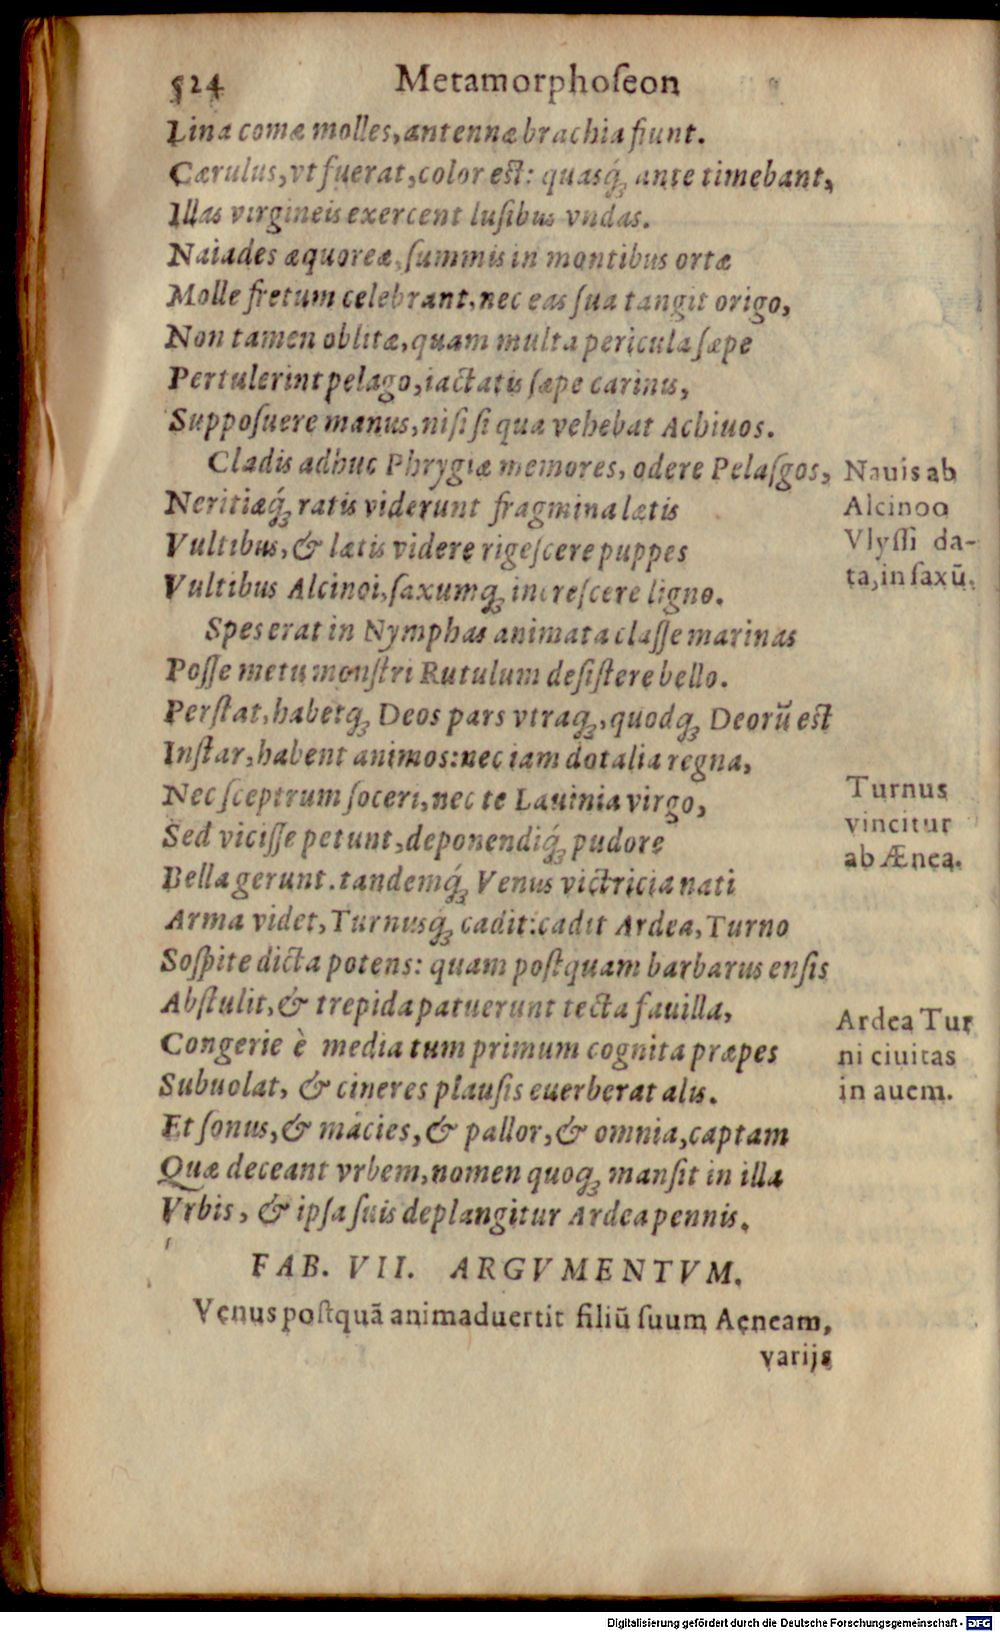 524 Metamorphoſeon
Lina comæ molles, antennæ brachia fiunt.
Cærulus, vt fuerat, color eſt: quasq́ꝫ ante timebant,
Illas virgineis exercent luſibus vndas.
Naiades æquoreæ, ſummis in montibus ortæ
Molle fretum celebrant, nec eas ſua tangit origo,
Non tamen oblitæ, quam multa pericula ſæpe
Pertulerint pelago, iactatis ſæpe carinis,
Suppoſuere manus, niſi ſi qua vehebat Achiuos.
Cladis adhuc Phrygiæ memores, odere Pelaſgos,
Neritiæq́ꝫ ratis viderunt fragmina lætis
Vultibus, & lætis videre rigeſcere puppes
Vultibus Alcinoi, ſaxumqꝫ increſcere ligno.
Nauis ab
Alcinoo
Vlyſſi da-
ta, in ſaxũ.
Spes erat in Nymphas animata claſſe marinas
Poſſe metu monſtri Rutulum deſiſtere bello.
Perſtat, habetqꝫ Deos pars vtraqꝫ, quodqꝫ Deorũ eſt
Inſtar, habent animos: nec iam dotalia regna,
Nec ſceptrum ſoceri, nec te Lauinia virgo,
Sed viciſſe petunt, deponendiq́ꝫ pudore
Bella gerunt. tandemq́ꝫ Venus victricia nati
Turnus
vincitur
ab Ænea.
Arma videt, Turnusq́ꝫ cadit: cadit Ardea, Turno
Soſpite dicta potens: quam poſtquam barbarus enſis
Abſtulit, & trepida patuerunt tecta fauilla,
Congerie è media tum primum cognita præpes
Subuolat, & cineres plauſis euerberat alis.
Ardea Tur
ni ciuitas
in auem.
Et ſonus, & macies, & pallor, & omnia, captam
Quæ deceant vrbem, nomen quoqꝫ manſit in illa
Vrbis, & ipſa ſuis deplangitur Ardea pennis.
FAB. VII. ARGVMENTVM.
Venus poſtquã animaduertit filiũ ſuum Aeneam,
varijs
Digitalisierung gefördert durch die Deutsche Forschungsgemeinschaft - DFG